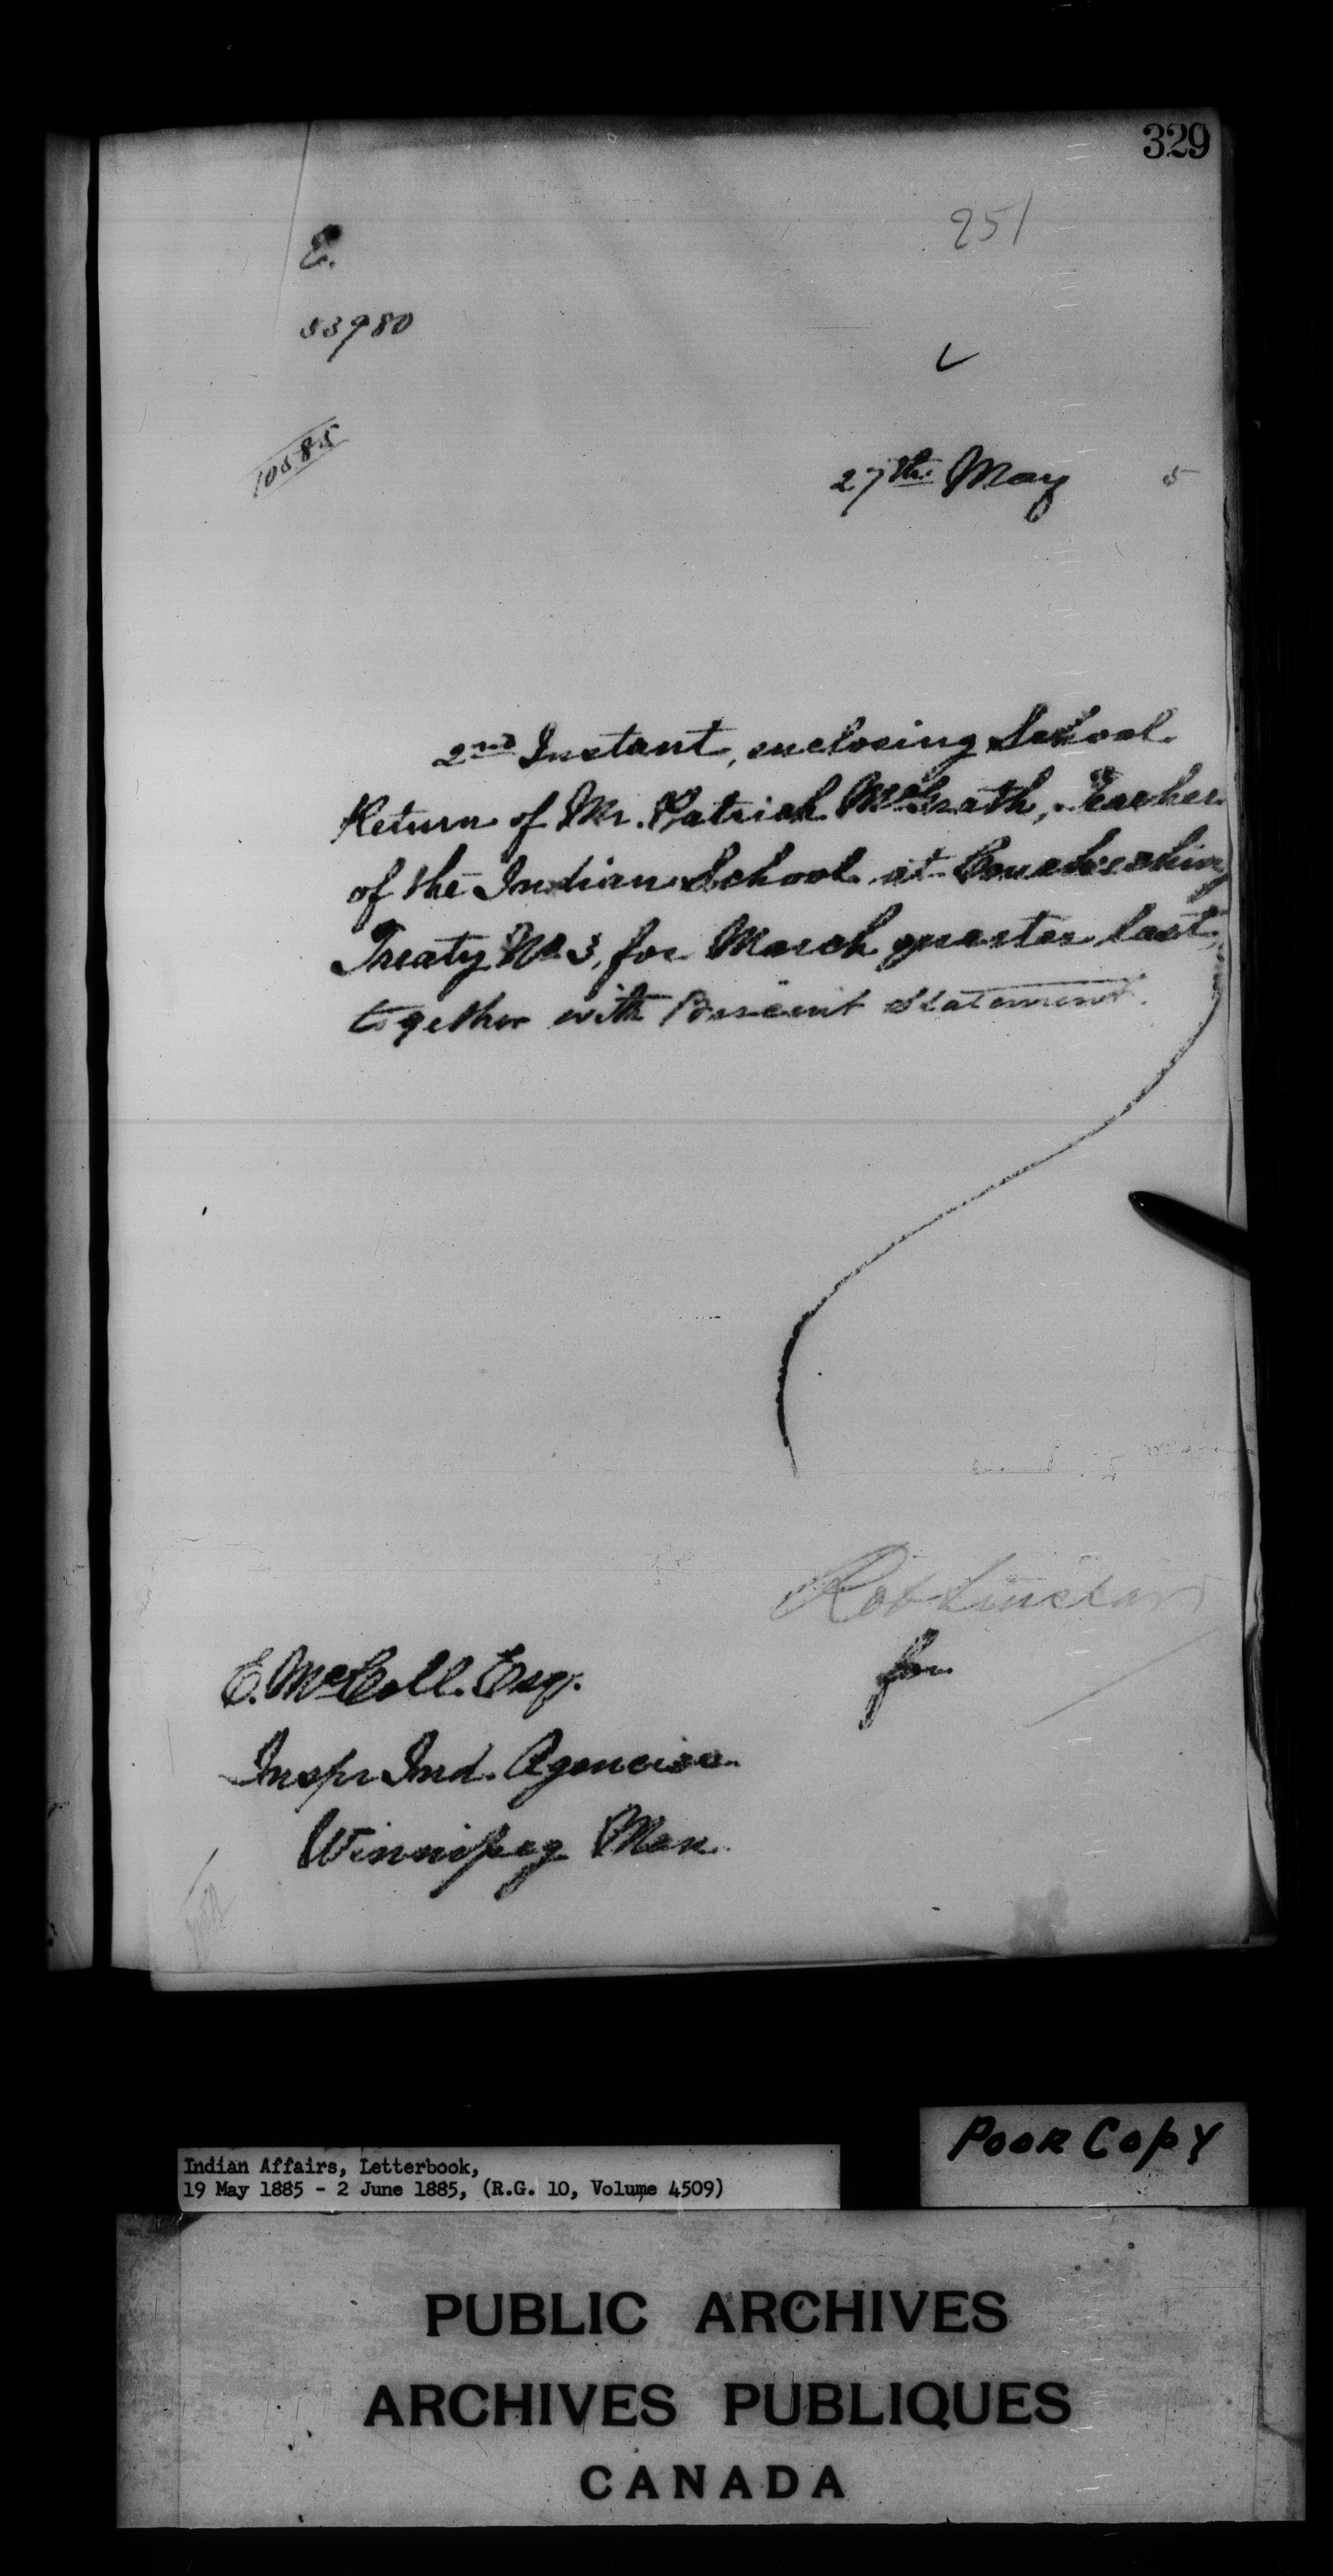 329
251
E.
53980
10585
27th May 5
2nd Instant, enclosing School
Return of Mr. Patrick McGrath, Teacher
of the Indian School at
Treaty No 3, for March quarter last,
together with Statement.
Rob Sinclair
for
E. McColl. Esq.
Inspr Ind. Agencies
Winnipeg Man.
Poor Copy
Indian Affairs, Letterbook,
19 May 1885 - 2 June 1885, (R.G. 10, Volume 4509)
PUBLIC ARCHIVES
ARCHIVES PUBLIQUES
CANADA